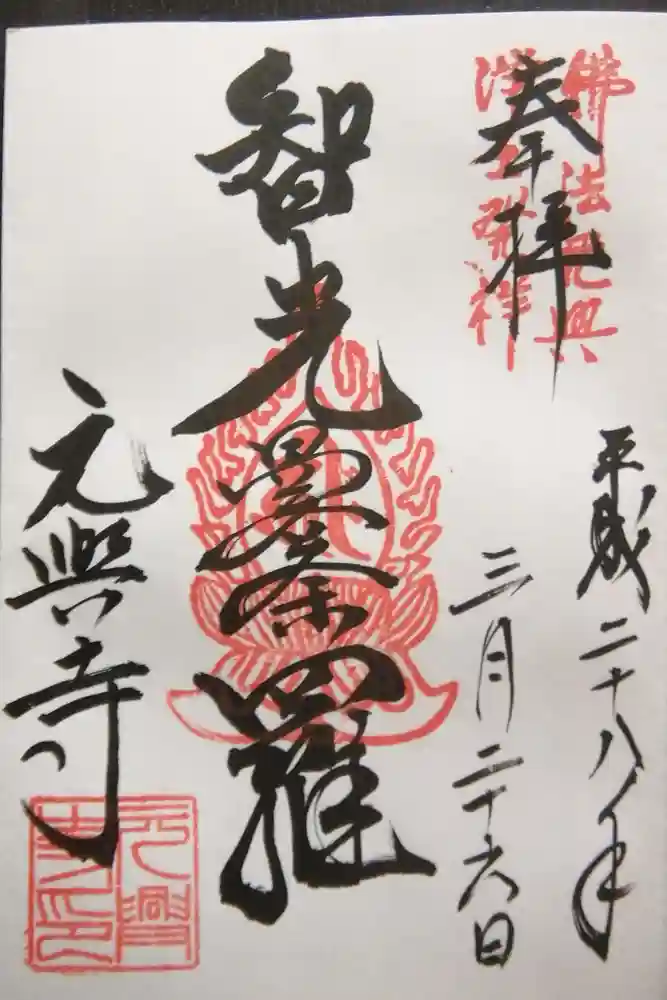 佛法興
浄土発祥
奉拝
平成二十八年
三月二十六日
智光曼荼羅
元興寺
元興
寺印